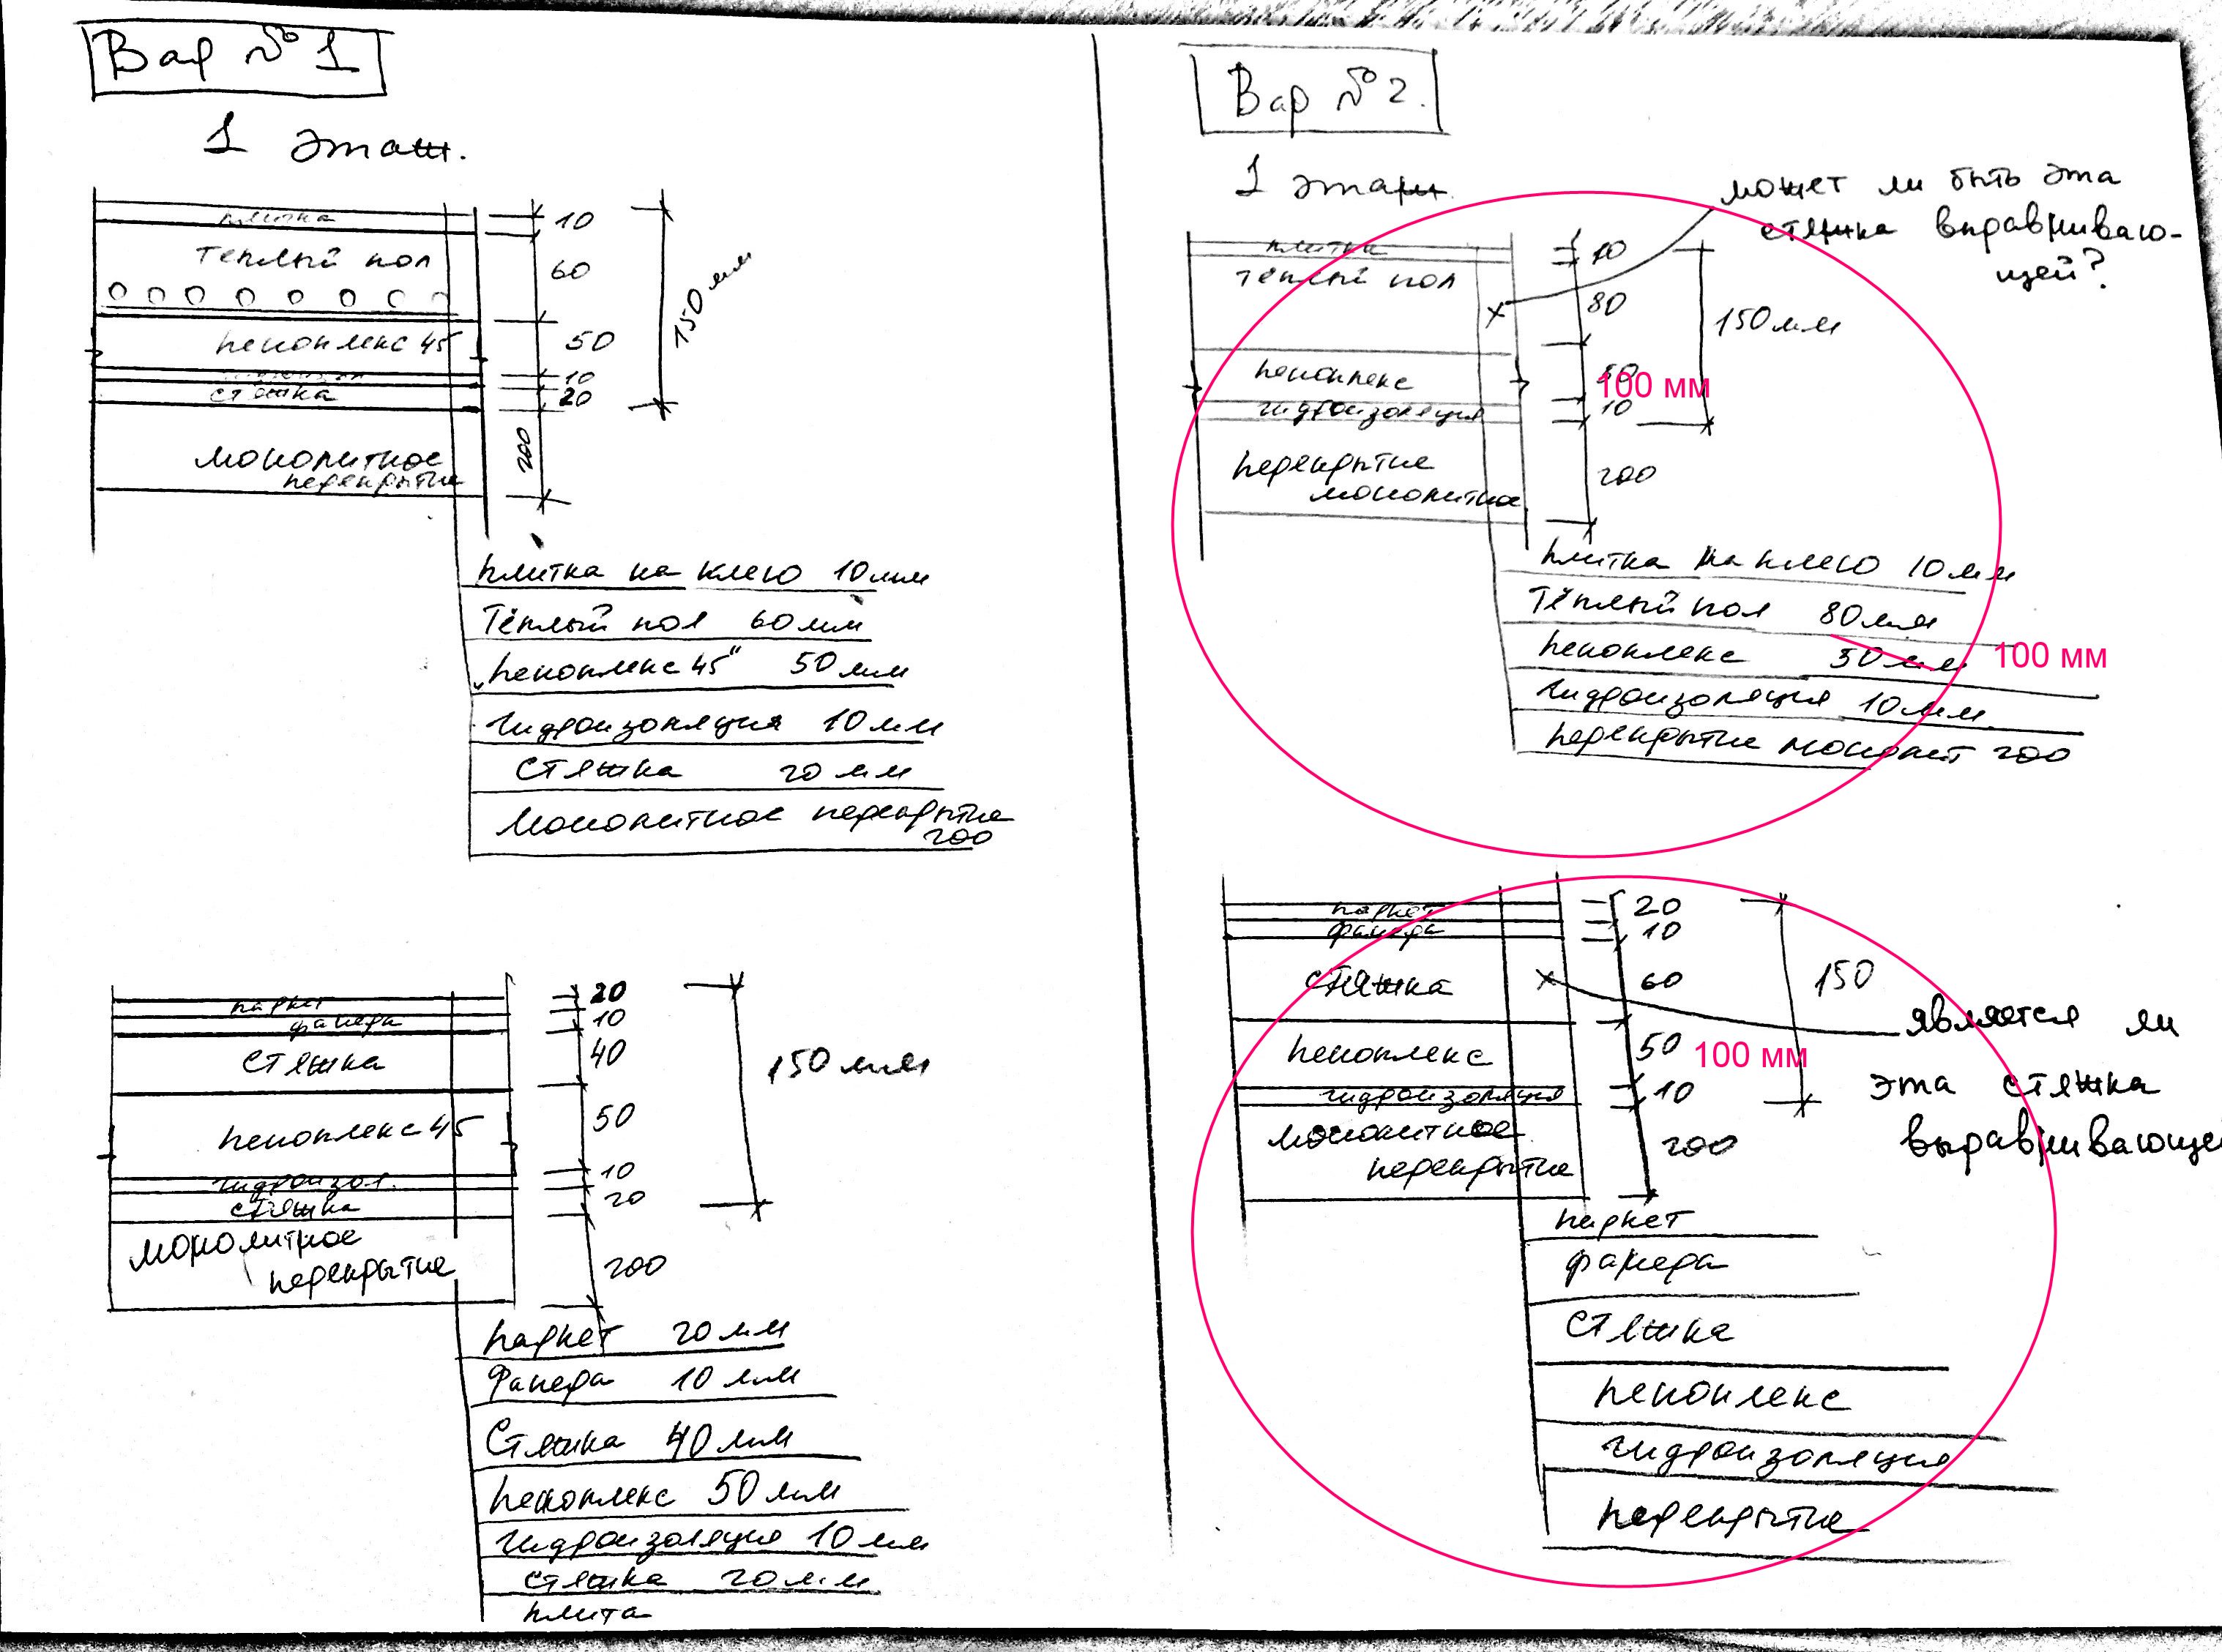 Вар №1
1 этаж.
плитка
10
тёплый пол
60
150 мм
пеноплекс 45
50
10
стяжка
20
монолитное
перекрытие
200
плитка на клею 10 мм
Тёплый пол 60 мм
"пеноплекс 45" 50 мм
гидроизоляция 10 мм
стяжка 20 мм
монолитное перекрытие
200
паркет
20
фанера
10
стяжка
40
150 мм
пеноплекс 45
50
гидроизол.
10
стяжка
20
монолитное
перекрытие
200
паркет 20 мм
Фанера 10 мм
Стяжка 40 мм
пеноплекс 50 мм
гидроизоляция 10 мм
стяжка 20 мм
плита
Вар №2.
1 этаж
может ли быть эта
стяжка выравниваю-
щей?
плитка
10
тёплый пол
80
150 мм
пеноплекс
50
100 мм
гидроизоляция
10
перекрытие
монолитное
200
плитка на клею 10 мм
Тёплый пол 80 мм
пеноплекс 50 мм 100 мм
гидроизоляция 10 мм.
перекрытие монолит 200
паркет
20
фанера
10
стяжка
60
150
является ли
эта стяжка
выравнивающей
пеноплекс
50
100 мм
гидроизоляция
10
монолитное
перекрытие
200
паркет
фанера
стяжка
пеноплекс
гидроизоляция
перекрытие